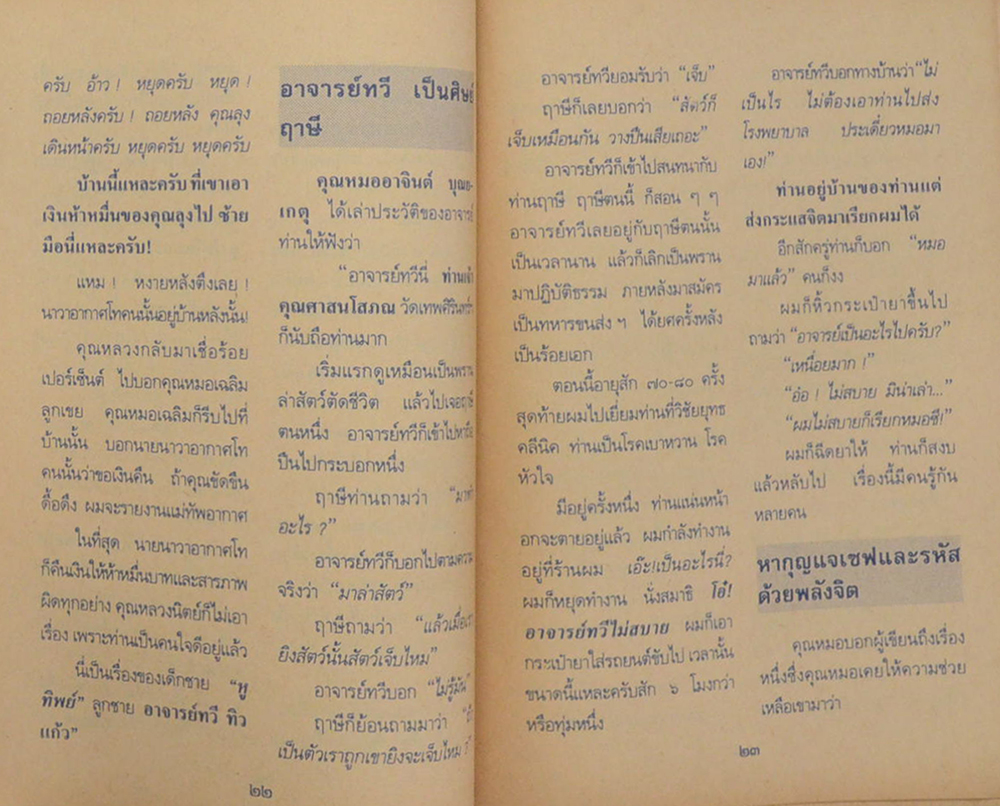 ครับ อ้าว ! หยุดครับ หยุด !
ถอยหลังครับ ! ถอยหลัง คุณลุง
เดินหน้าครับ หยุดครับ หยุดครับ
บ้านนี้แหละครับ ที่เขาเอา
เงินห้าหมื่นของคุณลุงไป ซ้าย
มือนี่แหละครับ!
แหม ! หงายหลังตึงเลย !
นาวาอากาศโทคนนั้นอยู่บ้านหลังนั้น!
คุณหลวงกลับมาเชื่อร้อย
เปอร์เซ็นต์ ไปบอกคุณหมอเฉลิม
ลูกเขย คุณหมอเฉลิมก็รีบไปที่
บ้านนั้น บอกนายนาวาอากาศโท
คนนั้นว่าขอเงินคืน ถ้าคุณขัดขืน
ดื้อดึง ผมจะรายงานแม่ทัพอากาศ
ในที่สุด นายนาวาอากาศโท
ก็คืนเงินให้ห้าหมื่นบาทและสารภาพ
ผิดทุกอย่าง คุณหลวงนิตย์ก็ไม่เอา
เรื่อง เพราะท่านเป็นคนใจดีอยู่แล้ว
นี่เป็นเรื่องของเด็กชาย “หู
ทิพย์” ลูกชาย อาจารย์ทวี ทิว
แก้ว”
๒๒
อาจารย์ทวี เป็นศิษย์
ฤาษี
คุณหมออาจินต์ บุณย-
เกตุ ได้เล่าประวัติของอาจารย์
ท่านให้ฟังว่า
“อาจารย์ทวีนี่ ท่านเจ้า
คุณศาสนโสภณ วัดเทพศิรินทร์
ก็นับถือท่านมาก
เริ่มแรกดูเหมือนเป็นพราน
ล่าสัตว์ตัดชีวิต แล้วไปเจอฤาษี
ตนหนึ่ง อาจารย์ทวีก็เข้าไป
ปืนไปกระบอกหนึ่ง
ฤาษีท่านถามว่า “มาทำ
อะไร ?”
อาจารย์ทวีก็บอกไปตามความ
จริงว่า “มาล่าสัตว์”
ฤาษีถามว่า “แล้วเมื่อเรา
ยิงสัตว์นั้นสัตว์เจ็บไหม”
อาจารย์ทวีบอก “ไม่รู้มัน”
ฤาษีก็ย้อนถามมาว่า
เป็นตัวเราถูกเขายิงจะเจ็บไหม ?”
อาจารย์ทวียอมรับว่า “เจ็บ”
ฤาษีก็เลยบอกว่า “สัตว์ก็
เจ็บเหมือนกัน วางปืนเสียเถอะ”
อาจารย์ทวีก็เข้าไปสนทนากับ
ท่านฤาษี ฤาษีตนนี้ ก็สอน ๆ ๆ
อาจารย์ทวีเลยอยู่กับฤาษีตนนั้น
เป็นเวลานาน แล้วก็เลิกเป็นพราน
มาปฏิบัติธรรม ภายหลังมาสมัคร
เป็นทหารขนส่ง ฯ ได้ยศครั้งหลัง
เป็นร้อยเอก
ตอนนี้อายุสัก ๗๐-๘๐ ครั้ง
สุดท้ายผมไปเยี่ยมท่านที่วิชัยยุทธ
คลีนิค ท่านเป็นโรคเบาหวาน โรค
หัวใจ
มีอยู่ครั้งหนึ่ง ท่านแน่นหน้า
อกจะตายอยู่แล้ว ผมกำลังทำงาน
อยู่ที่ร้านผม เอ๊ะ!เป็นอะไรนี่?
ผมก็หยุดทำงาน นั่งสมาธิ โอ๋!
อาจารย์ทวีไม่สบาย ผมก็เอา
กระเป๋ายาใส่รถยนต์ขับไป เวลานั้น
ขนาดนี้แหละครับสัก ๖ โมงกว่า
หรือทุ่มหนึ่ง
อาจารย์ทวีบอกทางบ้านว่า“ไม่
เป็นไร ไม่ต้องเอาท่านไปส่ง
โรงพยาบาล ประเดี๋ยวหมอมา
เอง!”
ท่านอยู่บ้านของท่านแต่
ส่งกระแสจิตมาเรียกผมได้
อีกสักครู่ท่านก็บอก “หมอ
มาแล้ว” คนก็งง
ผมก็หิ้วกระเป๋ายาขึ้นไป
ถามว่า “อาจารย์เป็นอะไรไปครับ?”
“เหนื่อยมาก !”
“อ๋อ ! ไม่สบาย มิน่าเล่า...”
“ผมไม่สบายก็เรียกหมอซี!”
ผมก็ฉีดยาให้ ท่านก็สงบ
แล้วหลับไป เรื่องนี้มีคนรู้กัน
หลายคน
หากุญแจเซฟและรหัส
ด้วยพลังจิต
คุณหมอบอกผู้เขียนถึงเรื่อง
หนึ่งซึ่งคุณหมอเคยให้ความช่วย
เหลือเขามาว่า
๒๓